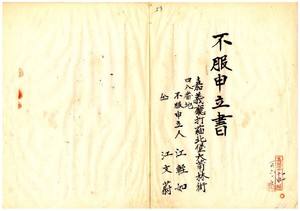 不服申立書
嘉義廳打猫北堡大莆林街
四八番地
不服申立人 江輕如
仝 江文蔚